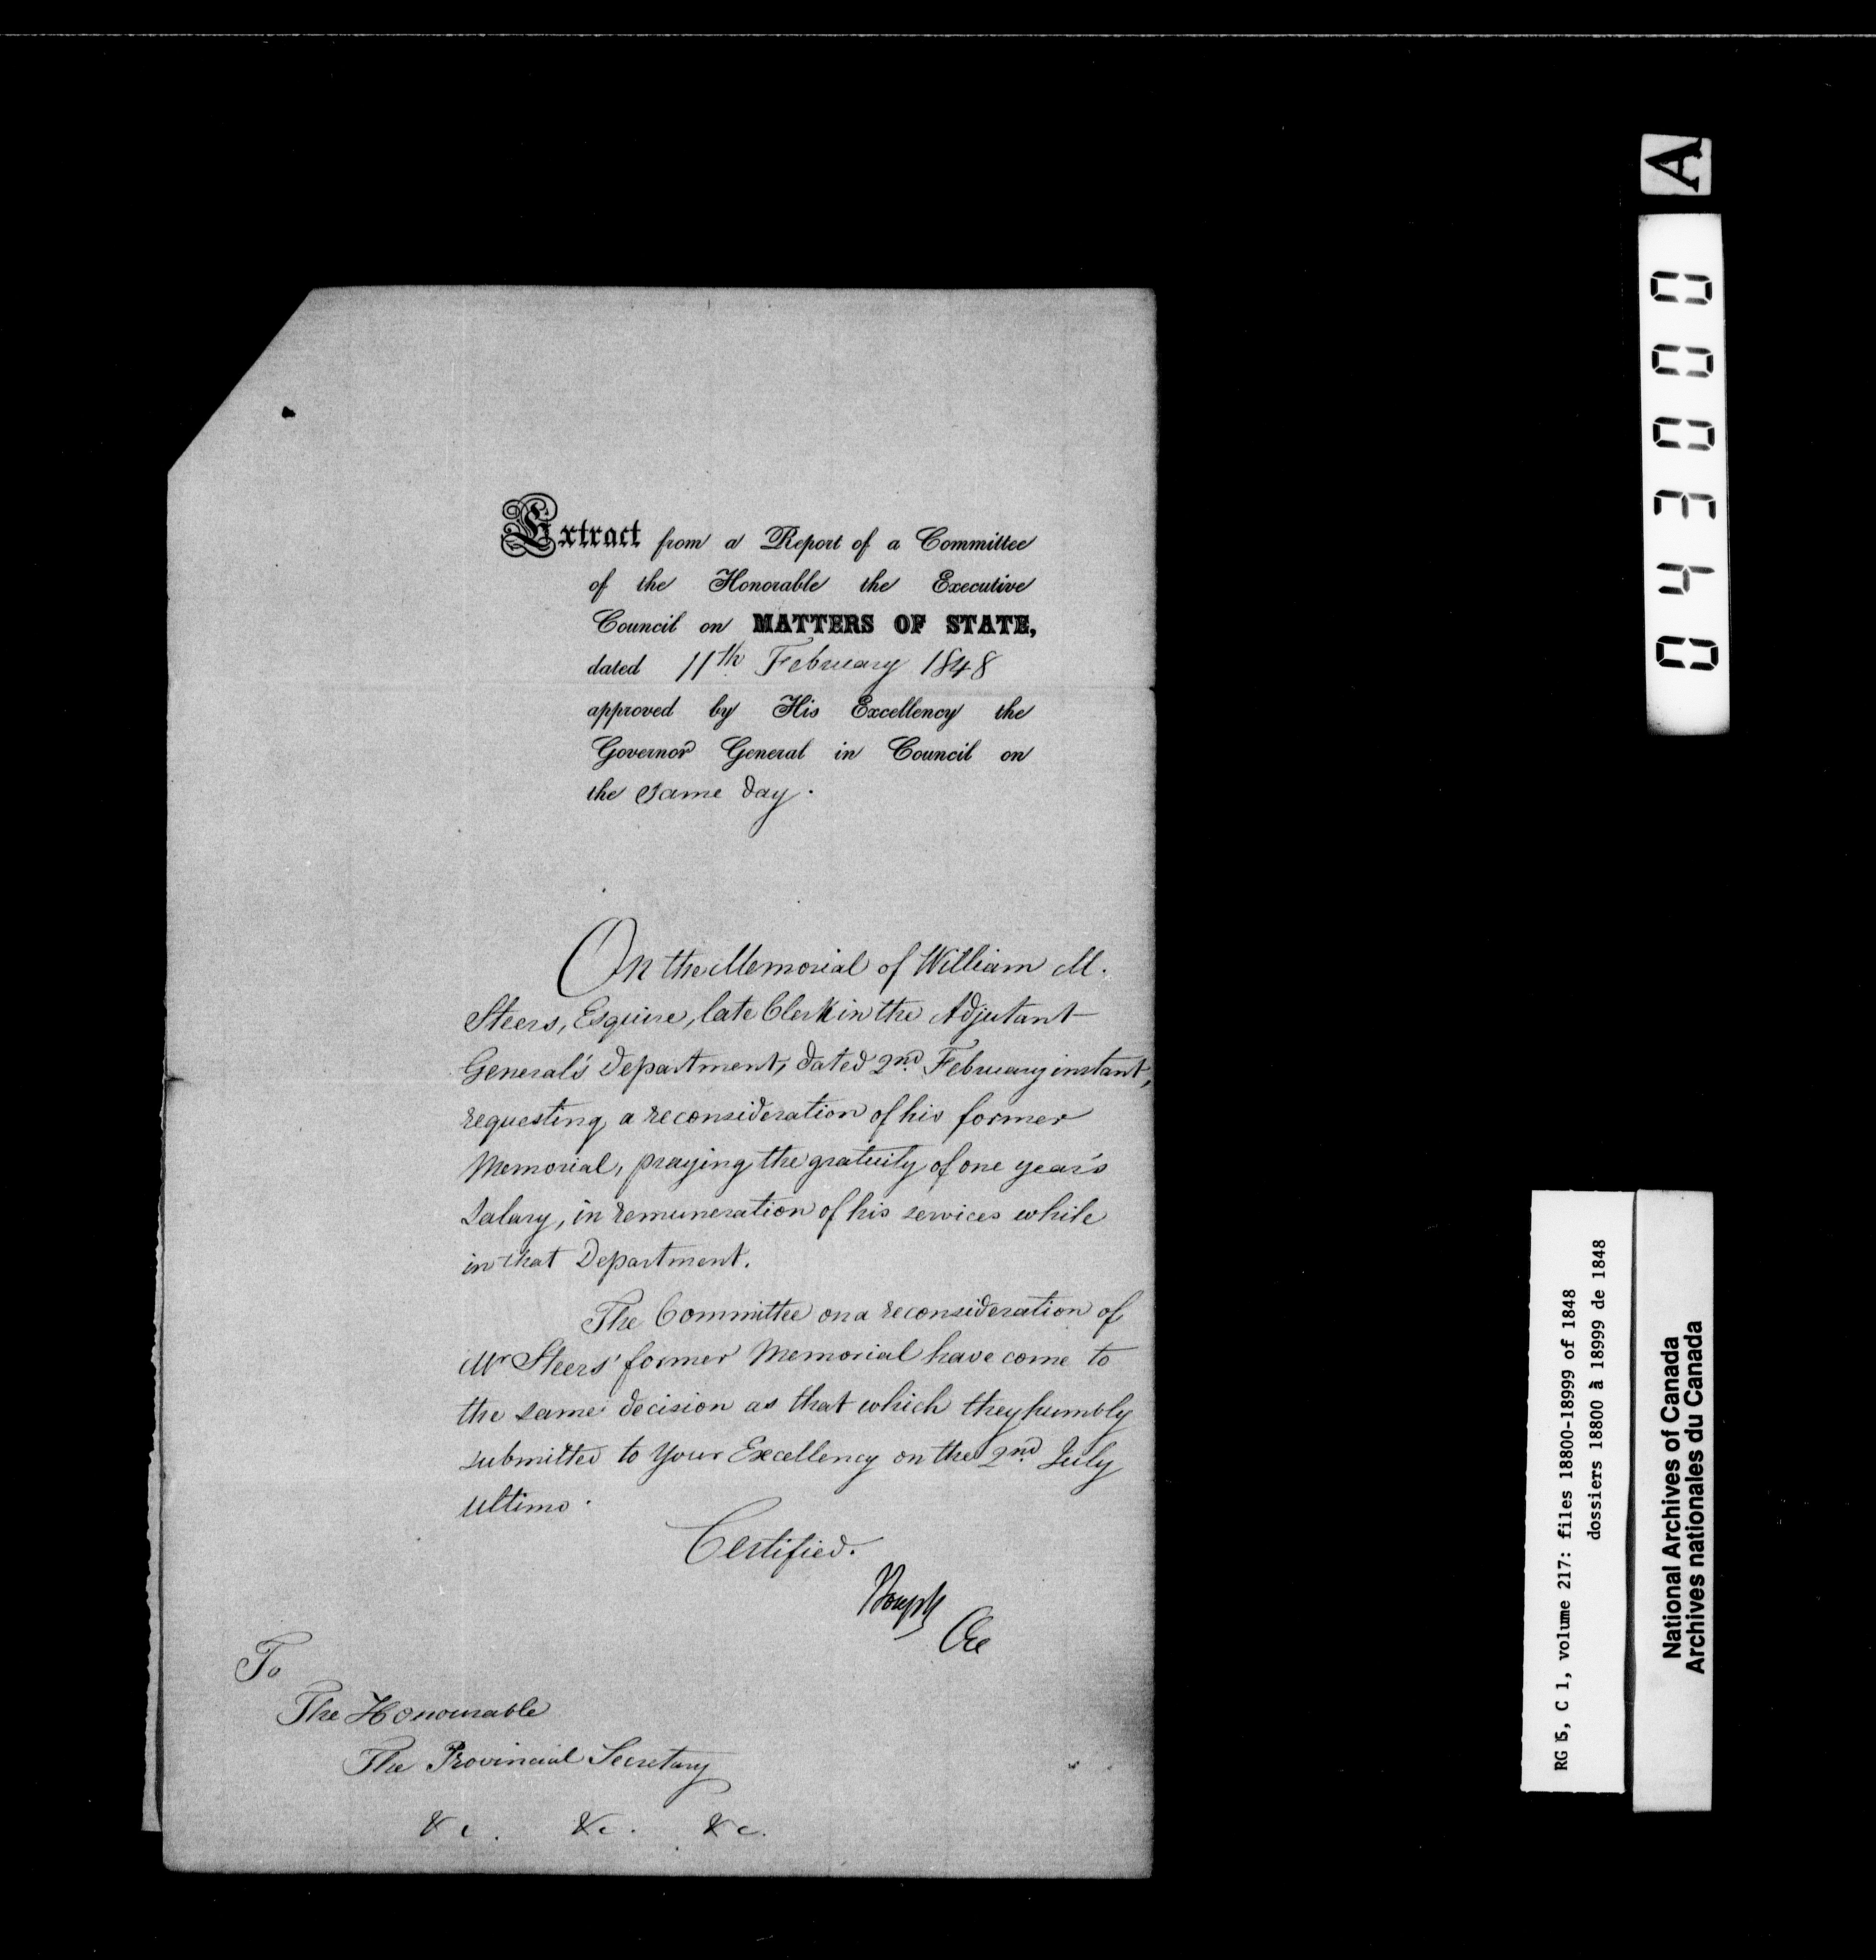 Extract from a Report of a Committee
of the Honorable the Executive
Council on MATTERS OF STATE,
dated 11th February 1848
approved by His Excellency the
Governor General in Council on
the same day.
On the Memorial of William M.
Steers, Esquire, late Clerk in the Adjutant
General's Department, dated 2nd February instant,
requesting a reconsideration of his former
Memorial, praying the gratuity of one year's
Salary, in remuneration of his services while
in that Department.
The Committee on a reconsideration of
Mr Steers' former Memorial have come to
the same decision as that which they humbly
submitted to Your Excellency on the 2nd July
ultimo.
Certified.
To
The Honourable
The Provincial Secretary
&c. &c. &c.
A
043000
RG 5, C 1, volume 217: files 18800-18999 of 1848
dossiers 18800 à 18999 de 1848
National Archives of Canada
Archives nationales du Canada